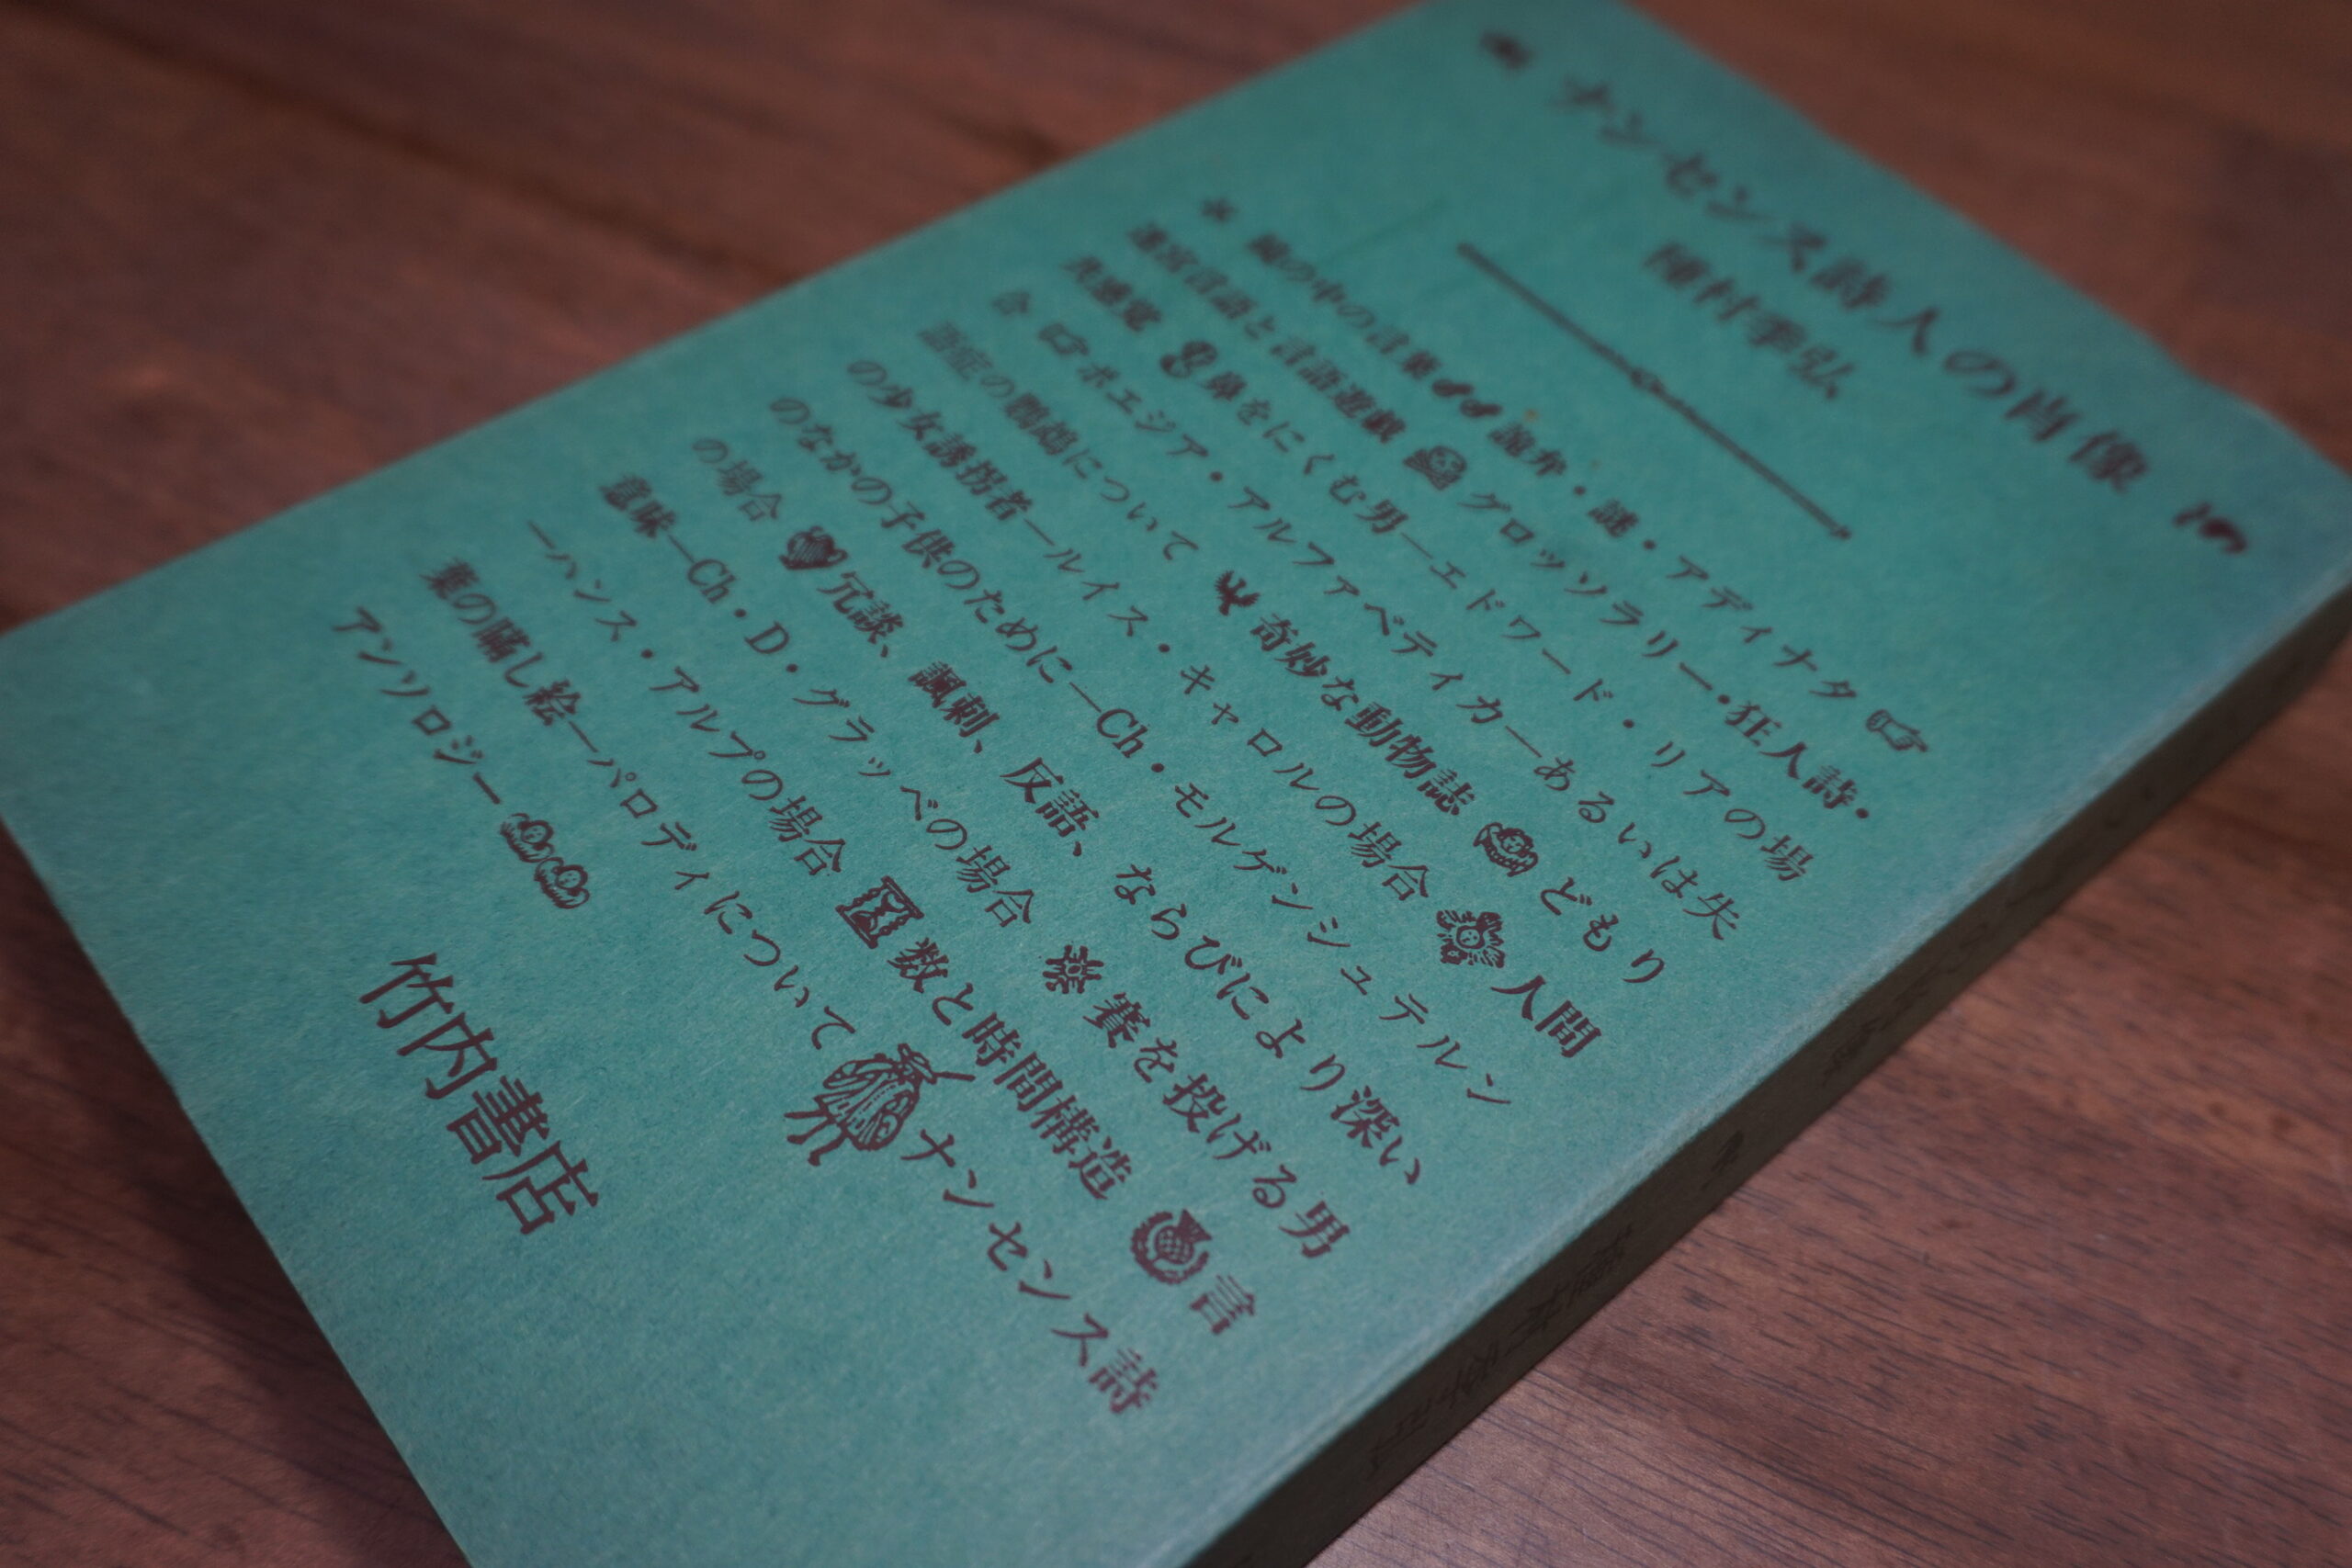 ナンセンス詩人の肖像
種村季弘
鏡の中の言葉 詭弁・謎・アディナタ
迷宮言語と言語遊戯 グロッソラリー・狂人詩・
共感覚 鼻をにくむ男—エドワード・リアの場
合 ポエジア・アルファベティカ—あるいは失
語症の鸚鵡について 奇妙な動物誌 どもり
の少女誘拐者—ルイス・キャロルの場合 人間
のなかの子供のために—Ch・モルゲンシュテルン
の場合 冗談、諷刺、反語、ならびにより深い
意味—Ch・D・グラッベの場合 賽を投げる男
—ハンス・アルプの場合 数と時間構造 言
葉の騙し絵—パロディについて ナンセンス詩
アンソロジー
竹内書店